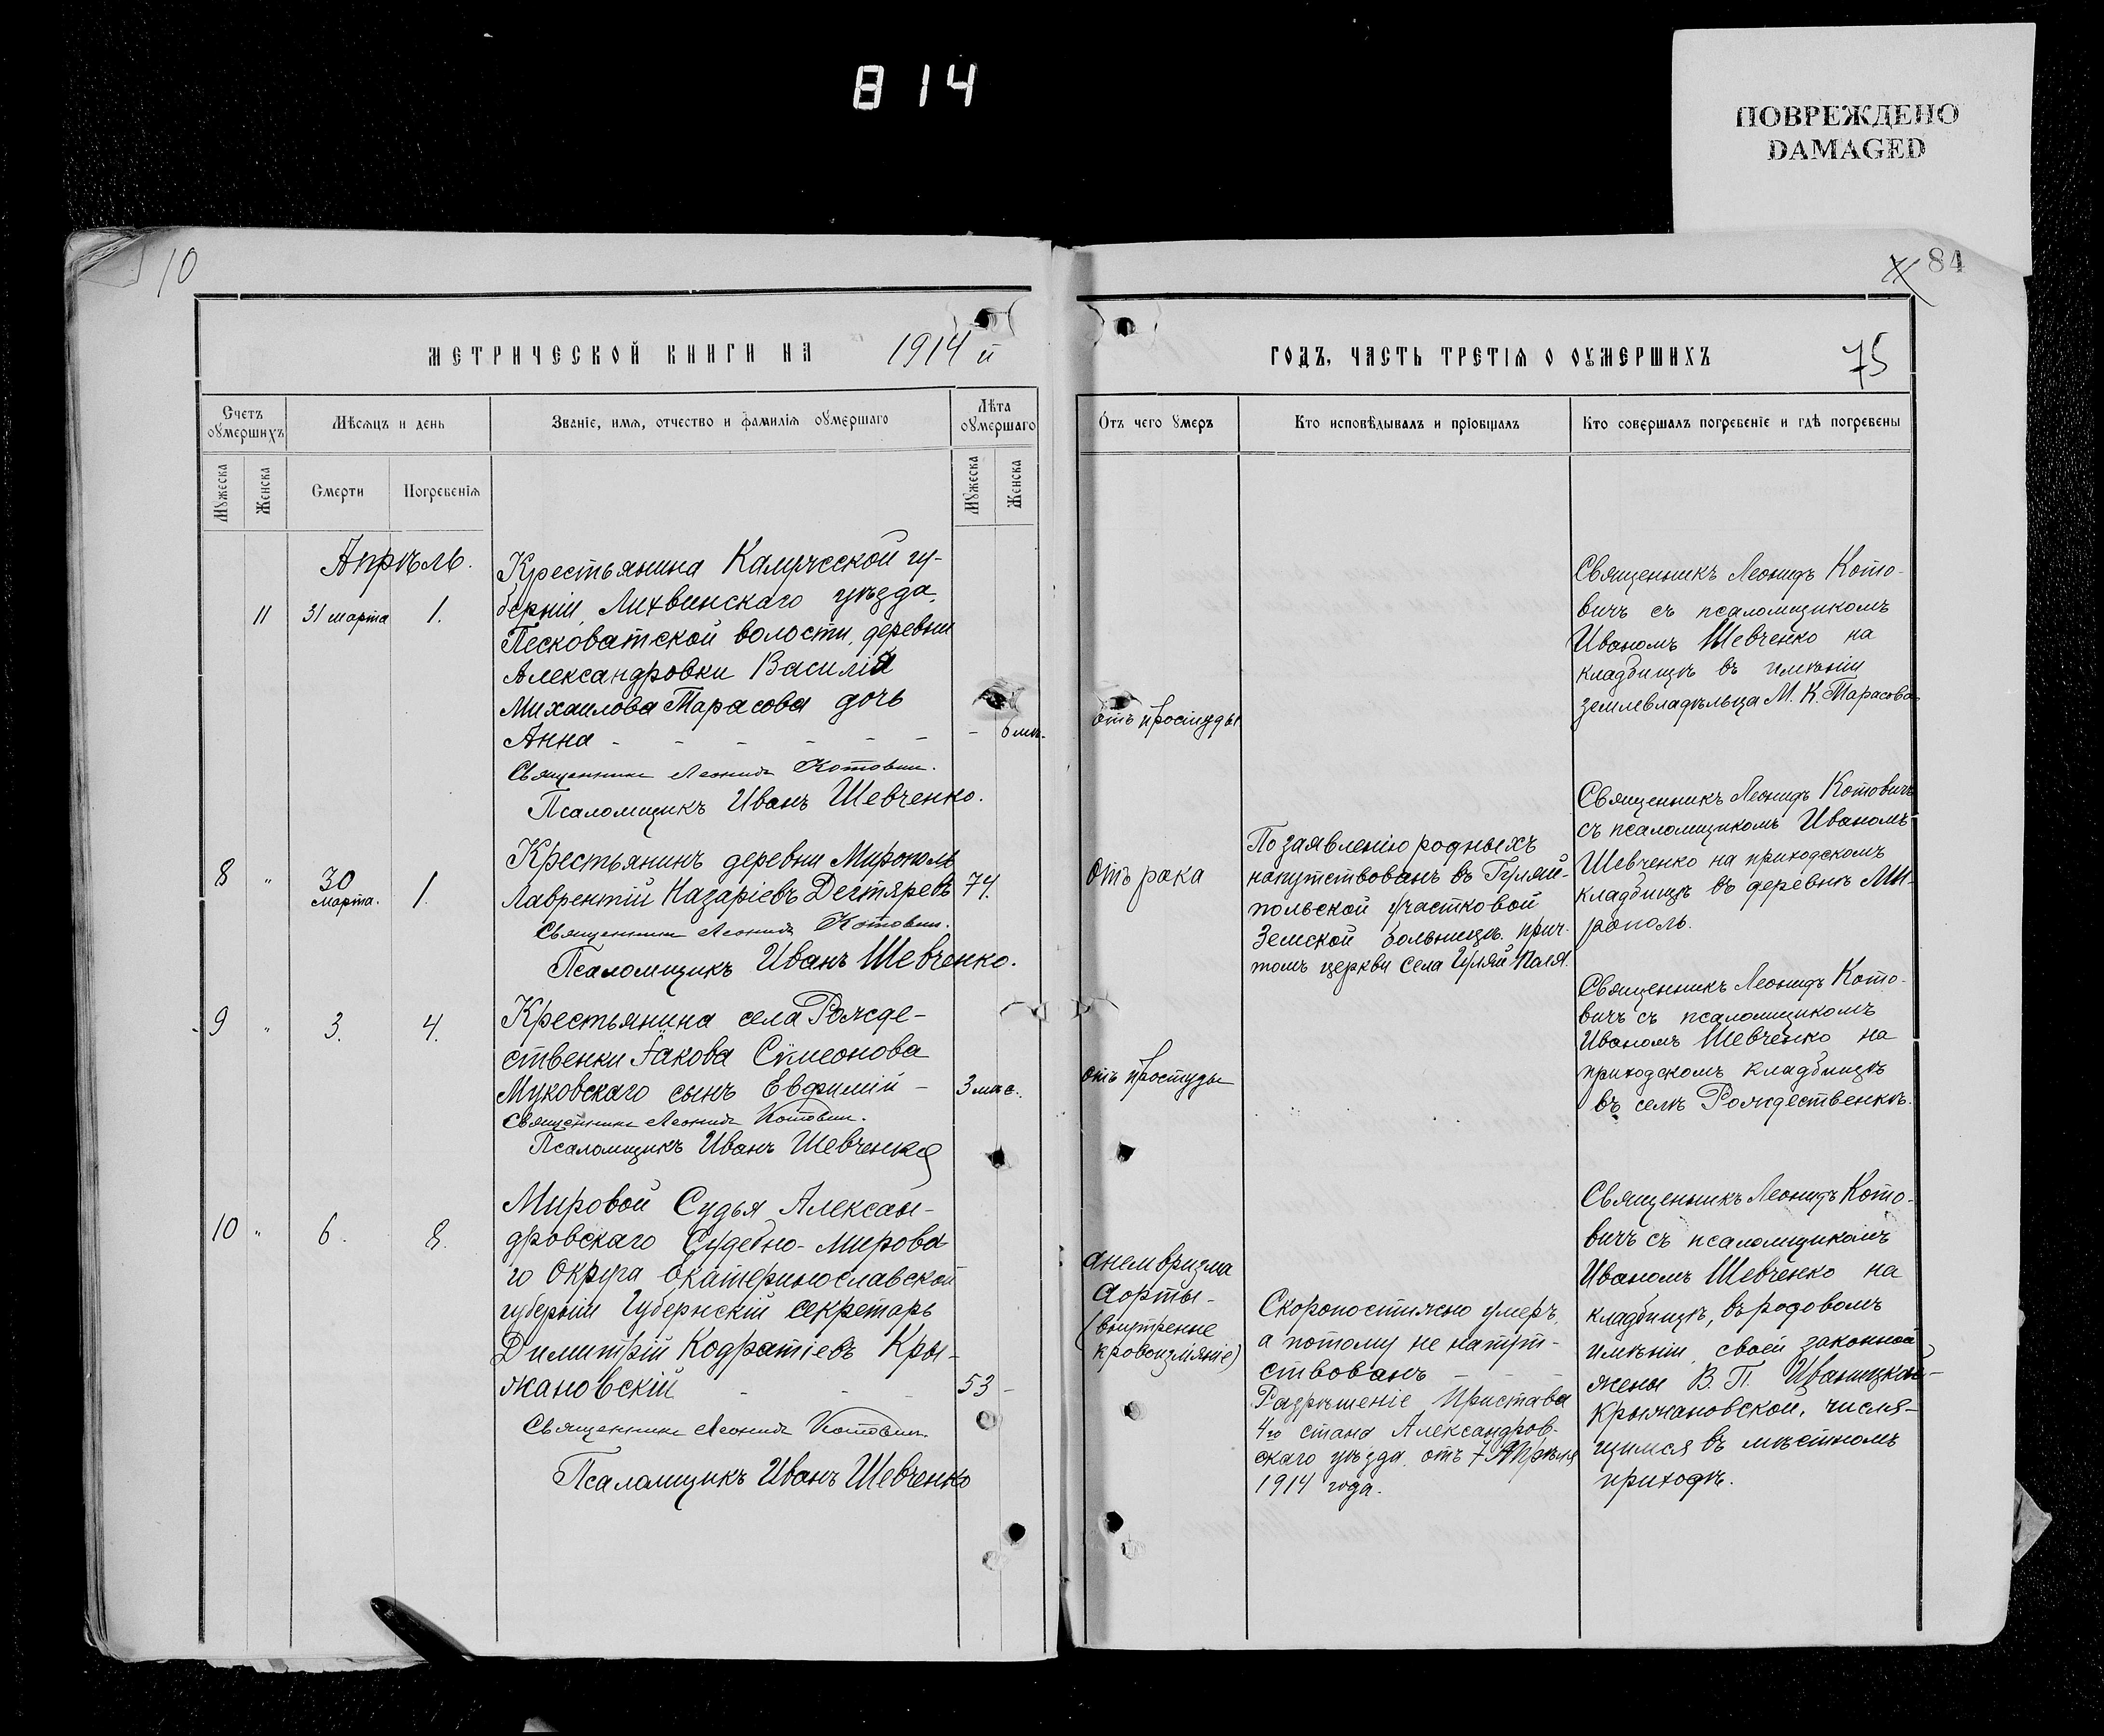 814
ПОВРЕЖДЕНО
DAMAGED
10
84
МЕТРИЧЕСКОЙ КНИГИ НА 1914 й
ГОДЪ, ЧАСТЬ ТРЕТІѦ О ОУМЕРШИХЪ
75
Счетъ оумершихъ
Мѣсяцъ и день
Званіе, имя, отчество и фамиліѧ оумершаго
Лѣта оумершаго
Мужеска
Женска
Смерти
Погребеніѧ
Мужеска
Женска
Отъ чего умеръ
Кто исповѣдывалъ и пріобщалъ
Кто совершалъ погребеніе и гдѣ погребены
Апрѣль.
11 31 марта 1.
Крестьянина Калужской гу-
берніи, Лихвинскаго уѣзда,
Песковатской волости, деревни
Александровки Василія
Михаилова Тарасова дочь
Анна - - - - - - - 6 мѣ.
Священникъ Леонидъ Котович.
Псаломщикъ Иванъ Шевченко.
отъ простуды
Священникъ Леонидъ Кото-
вичъ съ псаломщикомъ
Иваномъ Шевченко на
кладбищѣ въ имѣніи
землевладѣльца М. К. Тарасова
8 " 30 марта. 1.
Крестьянинъ деревни Мирополь
Лаврентій Назаріевъ Дегтяревъ 74.
Священникъ Леонидъ Котович.
Псаломщикъ Иванъ Шевченко.
Отъ рака
По заявленію родныхъ
напутствованъ въ Гуляй-
польской участковой
Земской больницѣ прич-
томъ церкви села Гуляй Поля.
Священникъ Леонидъ Котовичъ
съ псаломщикомъ Иваномъ
Шевченко на приходскомъ
кладбищѣ въ деревнѣ Ми-
рополь.
9 " 3. 4.
Крестьянина села Рожде-
ственки Іакова Сѵмеонова
Муковскаго сынъ Евфимій - 3 мѣс.
Священникъ Леонидъ Котович.
Псаломщикъ Иванъ Шевченко
отъ простуды
Священникъ Леонидъ Кото-
вичъ съ псаломщикомъ
Иваномъ Шевченко на
приходскомъ кладбищѣ
въ селѣ Рождественкѣ.
10 " 6. 8.
Мировой Судья Алексан-
дровскаго Судебно-Мирова-
го Округа Екатеринославской
губерніи Губернскій секретарь
Димитрій Кодратіевъ Кры-
жановскій - - - 53 -
Священникъ Леонидъ Котович.
Псаломщикъ Иванъ Шевченко
Аневризма
Аорты-
(внутренне
кровоизліяніе)
Скоропостижно умеръ,
а потому не напут-
ствованъ - - -
Разрѣшеніе Пристава
4го стана Александров-
скаго уѣзда отъ 7 Апрѣля
1914 года.
Священникъ Леонидъ Кото-
вичъ съ псаломщикомъ
Иваномъ Шевченко на
кладбищѣ, въ родовомъ
имѣніи своей законной
жены В. П. Иваницкой-
Крыжановской, числя-
щимся въ мѣстномъ
приходѣ.